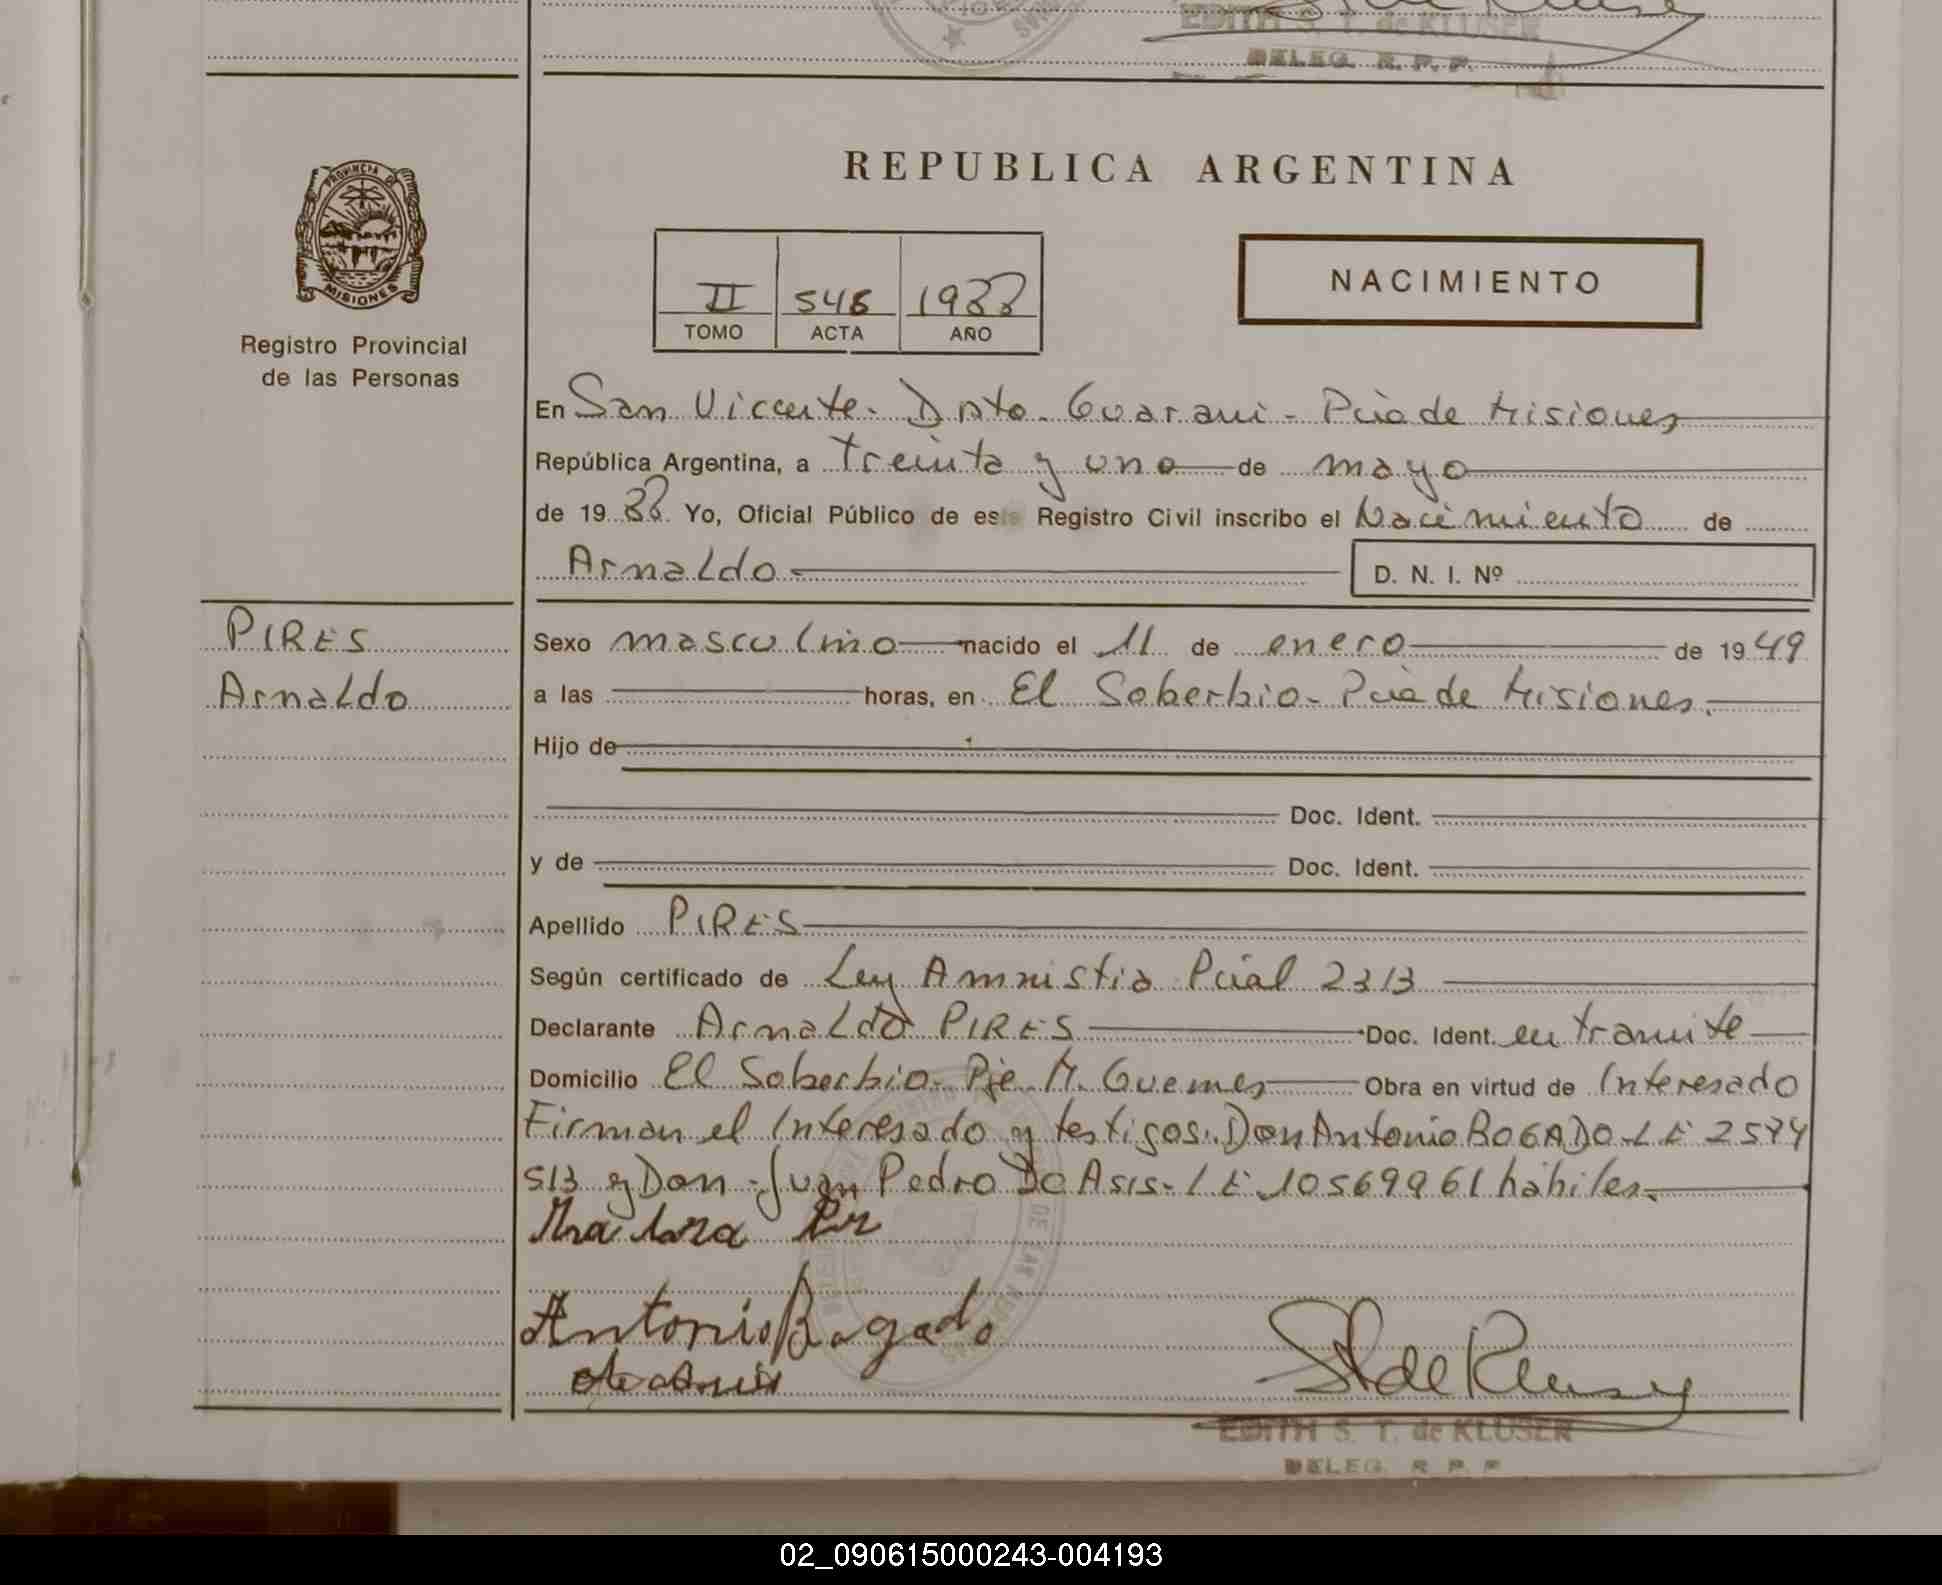 EDITH S. T. de KLUSER
DELEG. R. P. P.
REPUBLICA ARGENTINA
PROVINCIA DE
MISIONES
Registro Provincial
de las Personas
II 546 1988
TOMO ACTA AÑO
NACIMIENTO
En San Vicente. Dpto. Guarani - Pcia de Misiones
República Argentina, a treinta y uno de mayo
de 1988. Yo, Oficial Público de este Registro Civil inscribo el Nacimiento de
Arnaldo D. N. I. Nº
PIRES
Arnaldo
Sexo masculino nacido el 11 de enero de 1949
a las horas, en El Soberbio - Pcia de Misiones.
Hijo de
Doc. Ident.
y de Doc. Ident.
Apellido PIRES
Según certificado de Ley Amnistia Pcial 2313
Declarante Arnaldo PIRES Doc. Ident. en tramite
Domicilio El Soberbio - Pje M. Guemes Obra en virtud de Interesado
Firman el Interesado y testigos: Don Antonio BOGADO - L E 2574
513 y Don Juan Pedro Do Asis - L E 10569961 habiles.
Antonio Bogado
EDITH S. T. de KLUSER
DELEG. R. P. P.
02_090615000243-004193